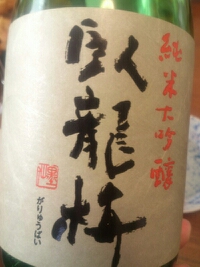 純米大吟醸
臥龍梅
がりゅうばい